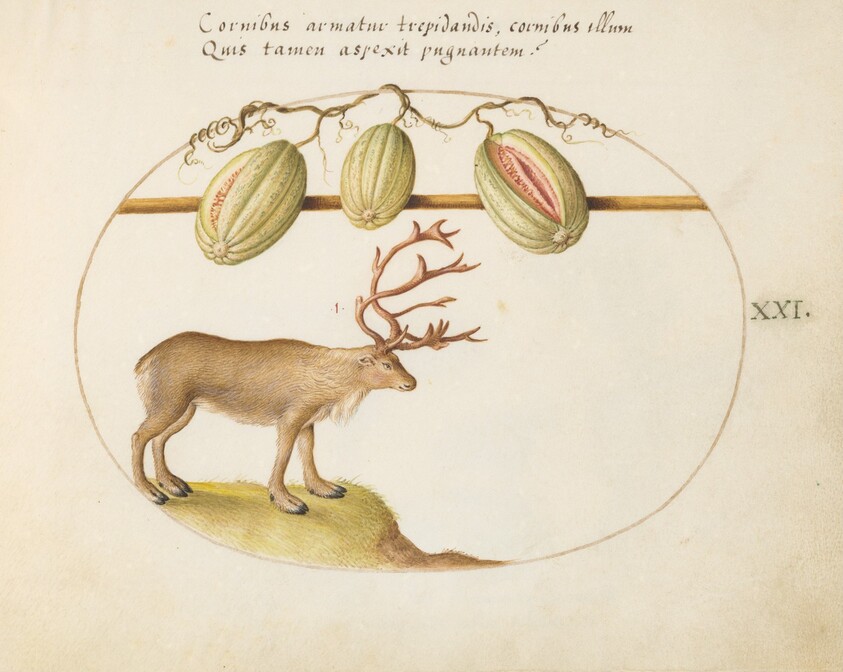 Cornibus armatur trepidandis, cornibus illum
Quis tamen aspexit pugnantem?
XXI.
1.